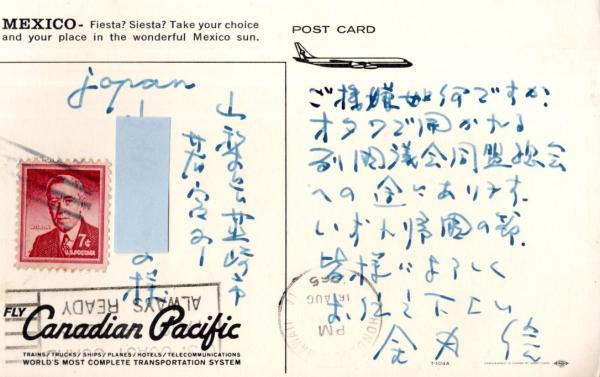 MEXICO- Fiesta? Siesta? Take your choice
and your place in the wonderful Mexico sun.
POST CARD
japan
山梨県韮崎市
若宮町
の様
ご機嫌如何ですか?
オタワで開かれる
列国議会同盟総会
への途にあります.
いずれ帰国の節.
皆様によろしく
お伝え下さい
金丸信
7¢
U.S. POSTAGE
ALWAYS
READY
PM
AUG
HONO
FLY
Canadian Pacific
TRAINS / TRUCKS / SHIPS / PLANES / HOTELS / TELECOMMUNICATIONS
WORLD'S MOST COMPLETE TRANSPORTATION SYSTEM
T-104A